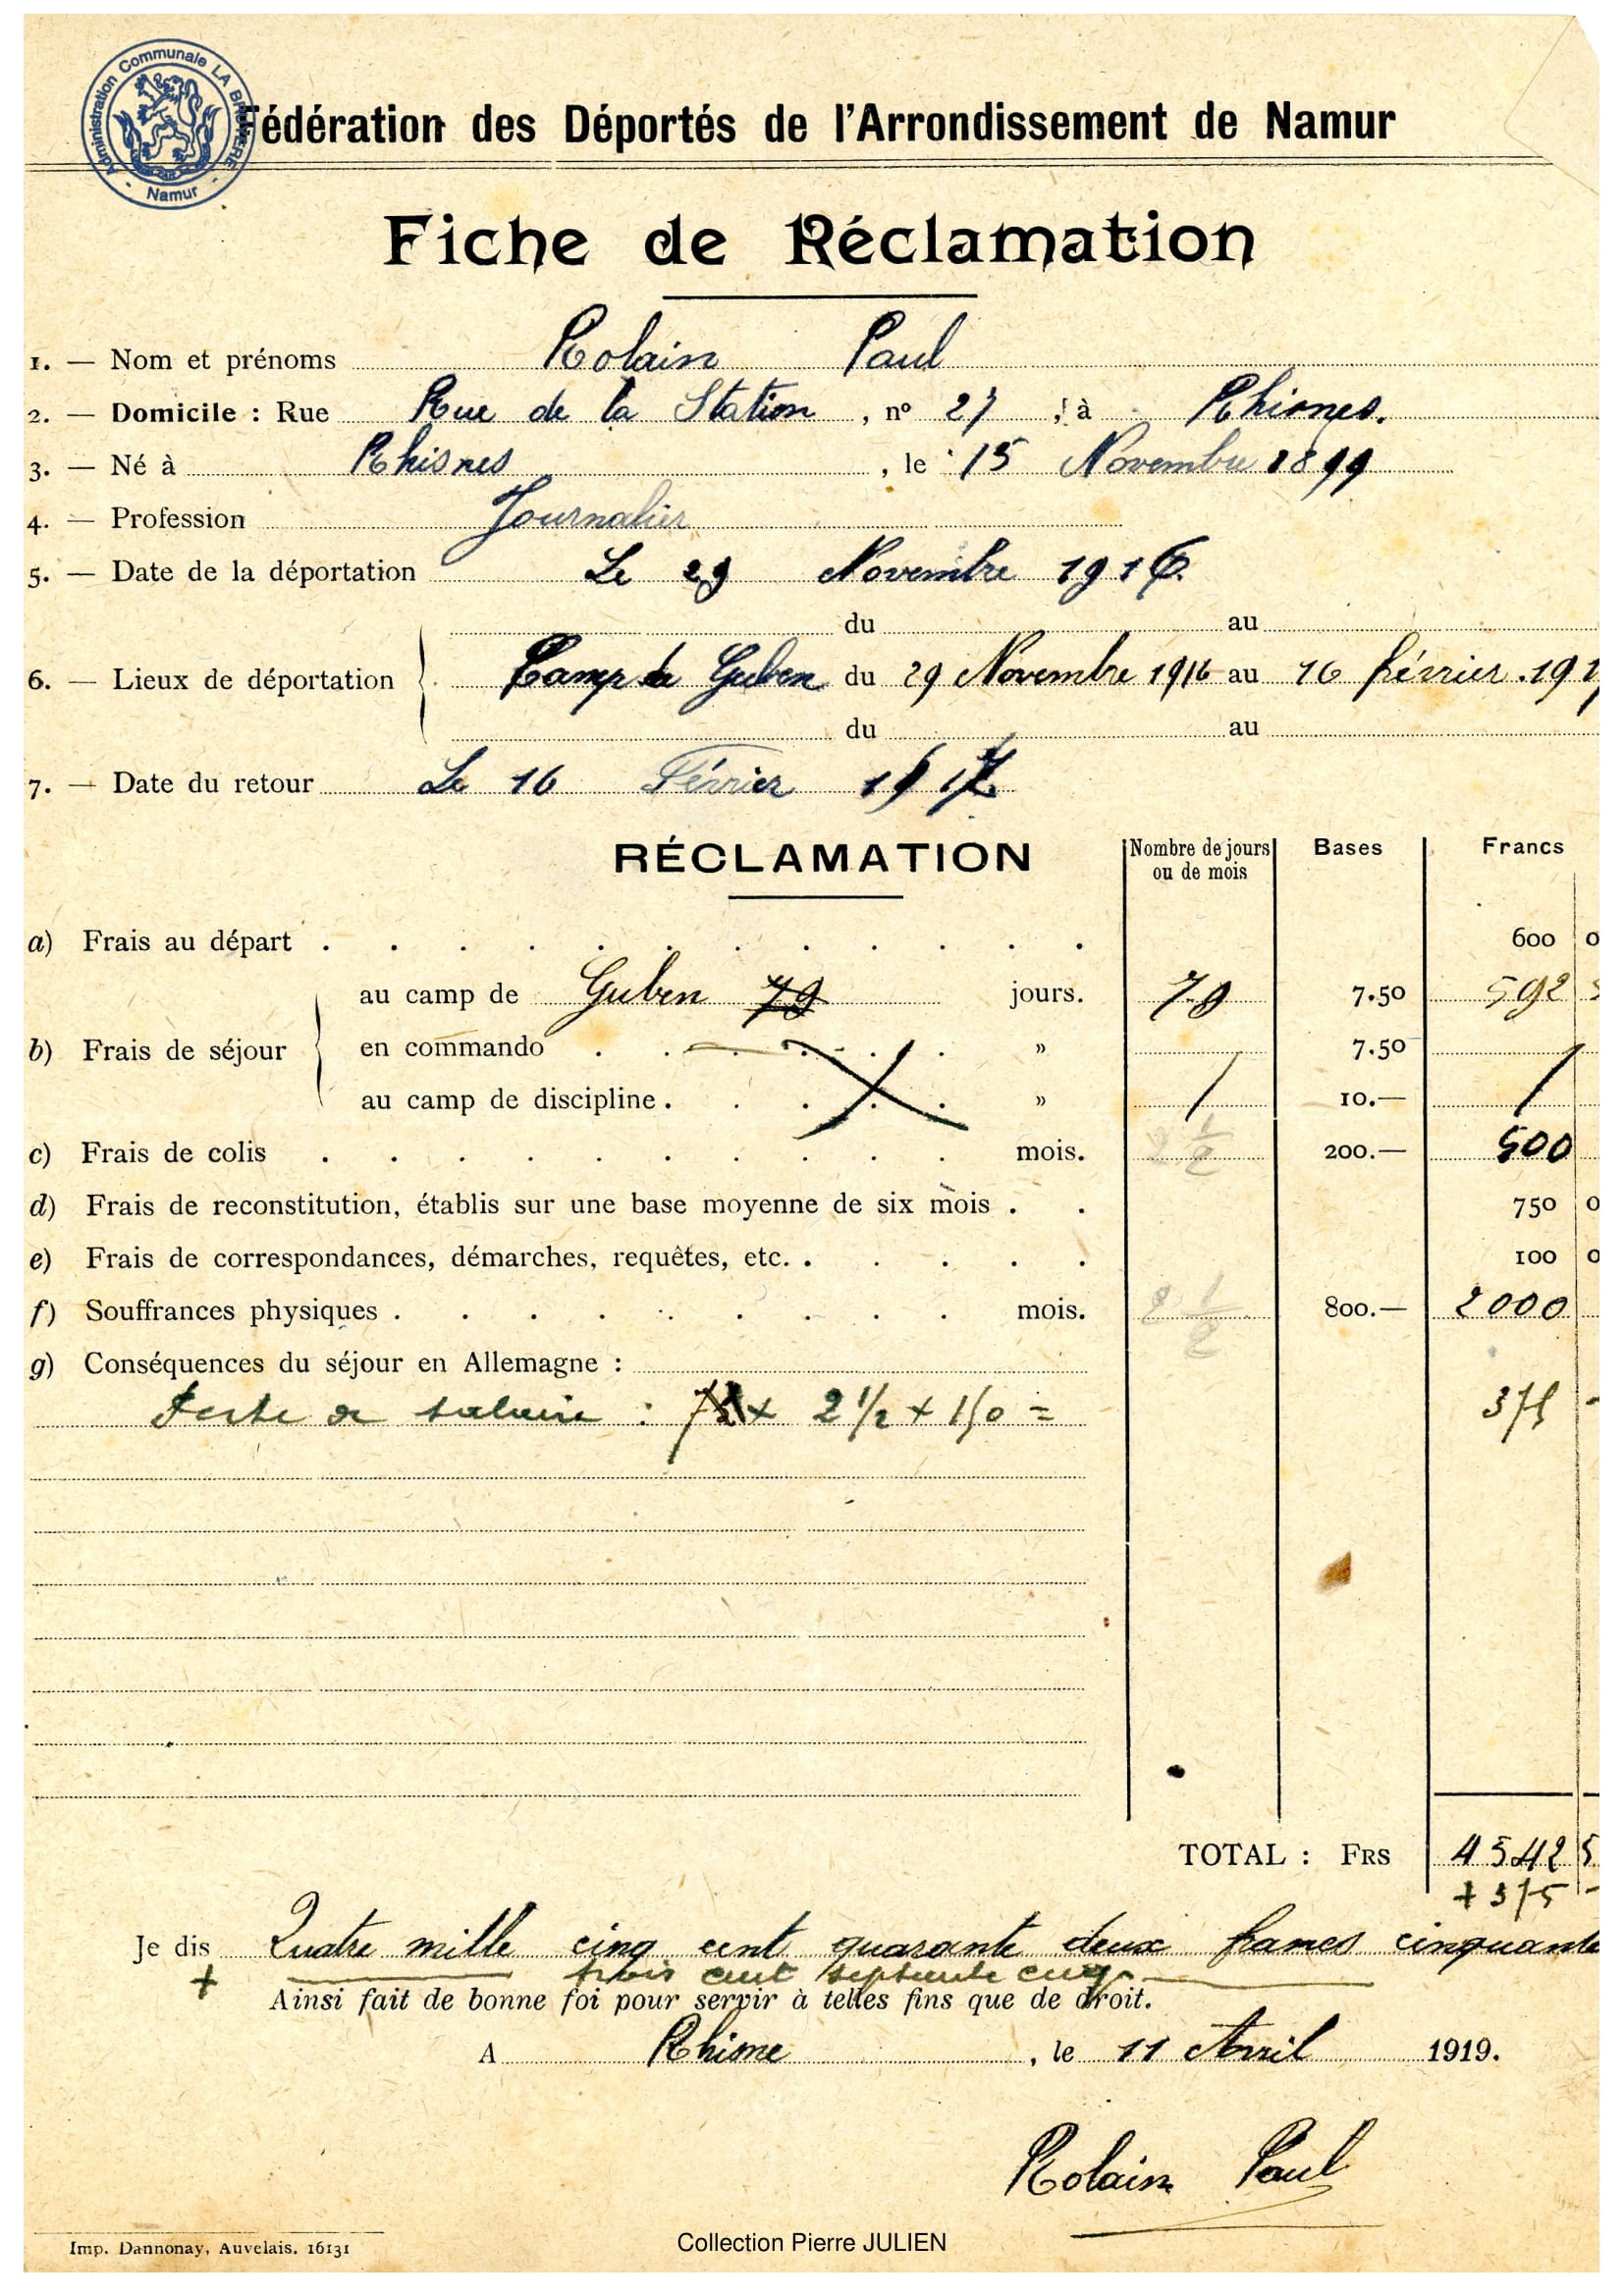 Administration Communale LA BRUYERE
- Namur -
Fédération des Déportés de l'Arrondissement de Namur
Fiche de Réclamation
1. — Nom et prénoms Rolain Paul
2. — Domicile : Rue Rue de la Station , nº 27 , à Rhisnes.
3. — Né à Rhisnes , le 15 Novembre 1899
4. — Profession Journalier
5. — Date de la déportation Le 29 Novembre 1916.
du au
6. — Lieux de déportation Camp de Guben du 29 Novembre 1916 au 16 février 191
du au
7. — Date du retour Le 16 Février 1917
RÉCLAMATION Nombre de jours ou de mois Bases Francs
a) Frais au départ . . . . . . . . . . . . 600 0
b) Frais de séjour
au camp de Guben 79 jours. 79 7.50 592 5
en commando . . . . . . » 7.50
au camp de discipline . . . . . » / 10.— /
c) Frais de colis . . . . . . . . . . mois. 2 1/2 200.— 500
d) Frais de reconstitution, établis sur une base moyenne de six mois . . 750 0
e) Frais de correspondances, démarches, requêtes, etc. . . . . . 100 0
f) Souffrances physiques . . . . . . . . . mois. 2 1/2 800.— 2000
g) Conséquences du séjour en Allemagne :
Perte de salaire : 2 1/2 + 150 = 375 -
TOTAL : FRS 4542 5
+ 375 -
Je dis Quatre mille cinq cent quarante deux francs cinquante
+ trois cent septante cinq
Ainsi fait de bonne foi pour servir à telles fins que de droit.
A Rhisne , le 11 Avril 1919.
Rolain Paul
Imp. Dannonay, Auvelais. 16131
Collection Pierre JULIEN